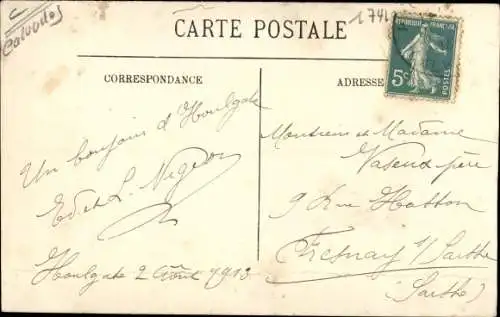 Calvados
CARTE POSTALE
1741
REPUBLIQUE FRANÇAISE
5c
POSTES
CORRESPONDANCE
ADRESSE
Un bonjour d'Houlgate
Ed et L. Vigeon
Houlgate 2 Août 1913
Monsieur et Madame
Vaseux père
9 Rue Hatton
Fresnay s/ Sarthe
(Sarthe)